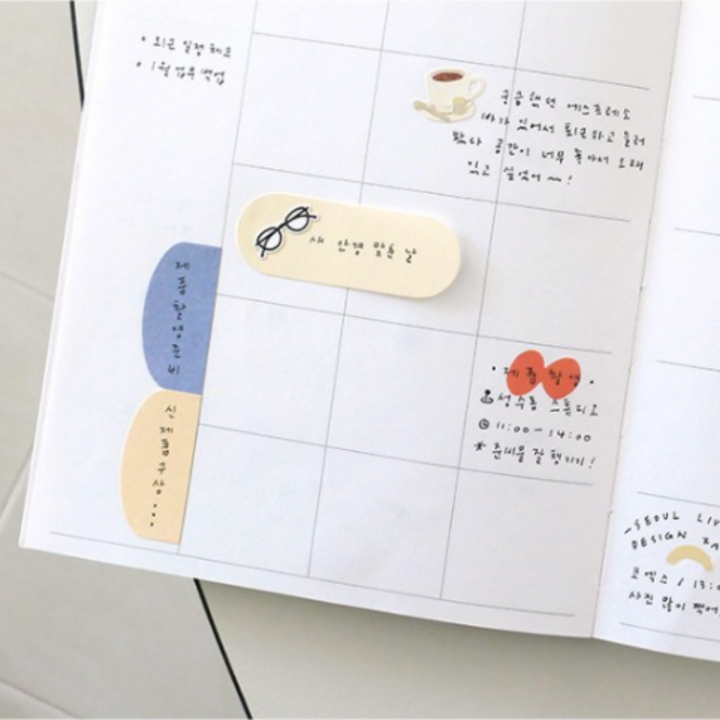 • 외근 일정 체크
• 1월 업무 백업
궁금했던 에스프레소
바가 있어서 퇴근하고 들러
봤다 공간이 너무 좋아서 오래
있고 싶었어 ㅠㅠ!
새 안경 맞춘 날
제품촬영준비
신제품구상...
• 제품 촬영 •
성수동 스튜디오
11:00 - 14:00
* 준비물 잘 챙기기!
SEOUL
DESIGN
코엑스 / 13:0
사진 많이 찍어